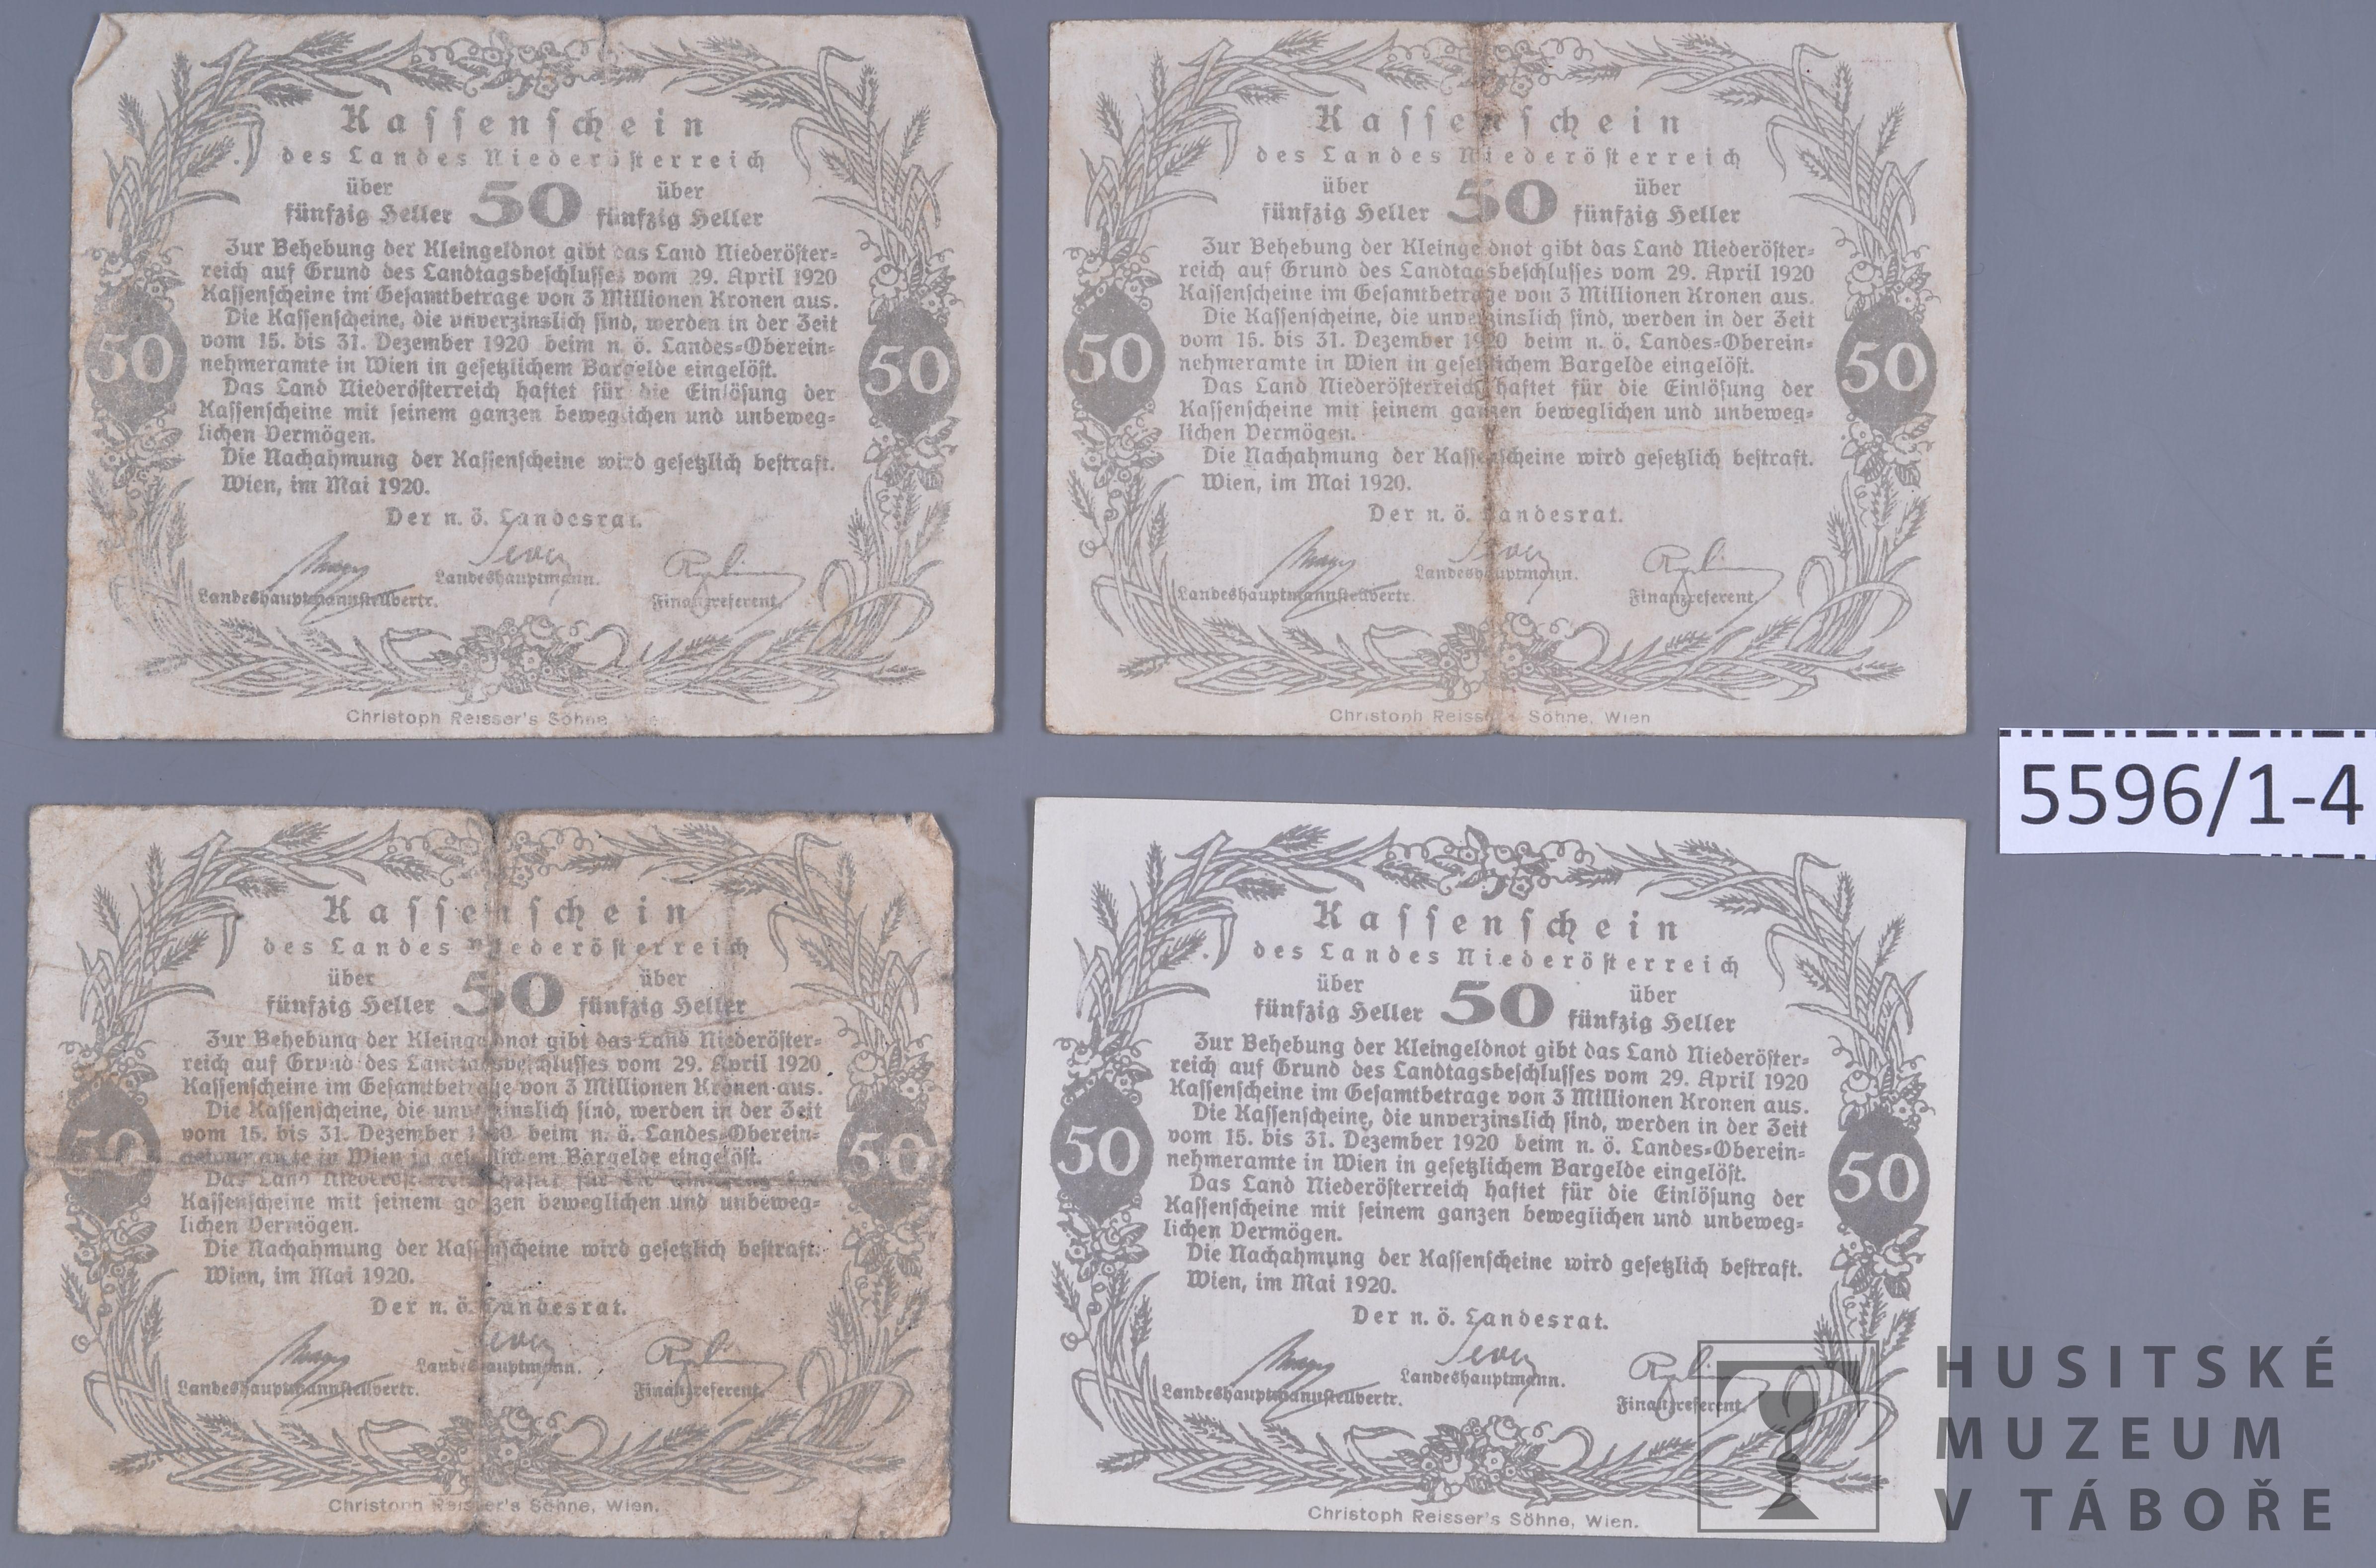 Kassenschein
des Landes Niederösterreich
über 50 über
fünfzig Heller fünfzig Heller
Zur Behebung der Kleingeldnot gibt das Land Niederöster-
reich auf Grund des Landtagsbeschlusses vom 29. April 1920
Kassenscheine im Gesamtbetrage von 3 Millionen Kronen aus.
Die Kassenscheine, die unverzinslich sind, werden in der Zeit
vom 15. bis 31. Dezember 1920 beim n. ö. Landes-Oberein-
nehmeramte in Wien in gesetzlichem Bargelde eingelöst.
Das Land Niederösterreich haftet für die Einlösung der
Kassenscheine mit seinem ganzen beweglichen und unbeweg-
lichen Vermögen.
Die Nachahmung der Kassenscheine wird gesetzlich bestraft.
Wien, im Mai 1920.
Der n. ö. Landesrat.
Sever
Landeshauptmann.
Landeshauptmannstellvertr.
Finanzreferent.
50
50
Christoph Reisser's Söhne, Wien
Kassenschein
des Landes Niederösterreich
über 50 über
fünfzig Heller fünfzig Heller
Zur Behebung der Kleingeldnot gibt das Land Niederöster-
reich auf Grund des Landtagsbeschlusses vom 29. April 1920
Kassenscheine im Gesamtbetrage von 3 Millionen Kronen aus.
Die Kassenscheine, die unverzinslich sind, werden in der Zeit
vom 15. bis 31. Dezember 1920 beim n. ö. Landes-Oberein-
nehmeramte in Wien in gesetzlichem Bargelde eingelöst.
Das Land Niederösterreich haftet für die Einlösung der
Kassenscheine mit seinem ganzen beweglichen und unbeweg-
lichen Vermögen.
Die Nachahmung der Kassenscheine wird gesetzlich bestraft.
Wien, im Mai 1920.
Der n. ö. Landesrat.
Sever
Landeshauptmann.
Landeshauptmannstellvertr.
Finanzreferent.
50
50
Christoph Reisser's Söhne, Wien
5596/1-4
Kassenschein
des Landes Niederösterreich
über 50 über
fünfzig Heller fünfzig Heller
Zur Behebung der Kleingeldnot gibt das Land Niederöster-
reich auf Grund des Landtagsbeschlusses vom 29. April 1920
Kassenscheine im Gesamtbetrage von 3 Millionen Kronen aus.
Die Kassenscheine, die unverzinslich sind, werden in der Zeit
vom 15. bis 31. Dezember 1920 beim n. ö. Landes-Oberein-
nehmeramte in Wien in gesetzlichem Bargelde eingelöst.
Das Land Niederösterreich haftet für die Einlösung der
Kassenscheine mit seinem ganzen beweglichen und unbeweg-
lichen Vermögen.
Die Nachahmung der Kassenscheine wird gesetzlich bestraft.
Wien, im Mai 1920.
Der n. ö. Landesrat.
Sever
Landeshauptmann.
Landeshauptmannstellvertr.
Finanzreferent.
50
50
Christoph Reisser's Söhne, Wien.
Kassenschein
des Landes Niederösterreich
über 50 über
fünfzig Heller fünfzig Heller
Zur Behebung der Kleingeldnot gibt das Land Niederöster-
reich auf Grund des Landtagsbeschlusses vom 29. April 1920
Kassenscheine im Gesamtbetrage von 3 Millionen Kronen aus.
Die Kassenscheine, die unverzinslich sind, werden in der Zeit
vom 15. bis 31. Dezember 1920 beim n. ö. Landes-Oberein-
nehmeramte in Wien in gesetzlichem Bargelde eingelöst.
Das Land Niederösterreich haftet für die Einlösung der
Kassenscheine mit seinem ganzen beweglichen und unbeweg-
lichen Vermögen.
Die Nachahmung der Kassenscheine wird gesetzlich bestraft.
Wien, im Mai 1920.
Der n. ö. Landesrat.
Sever
Landeshauptmann.
Landeshauptmannstellvertr.
Finanzreferent.
50
50
Christoph Reisser's Söhne, Wien.
HUSITSKÉ
MUZEUM
V TÁBOŘE